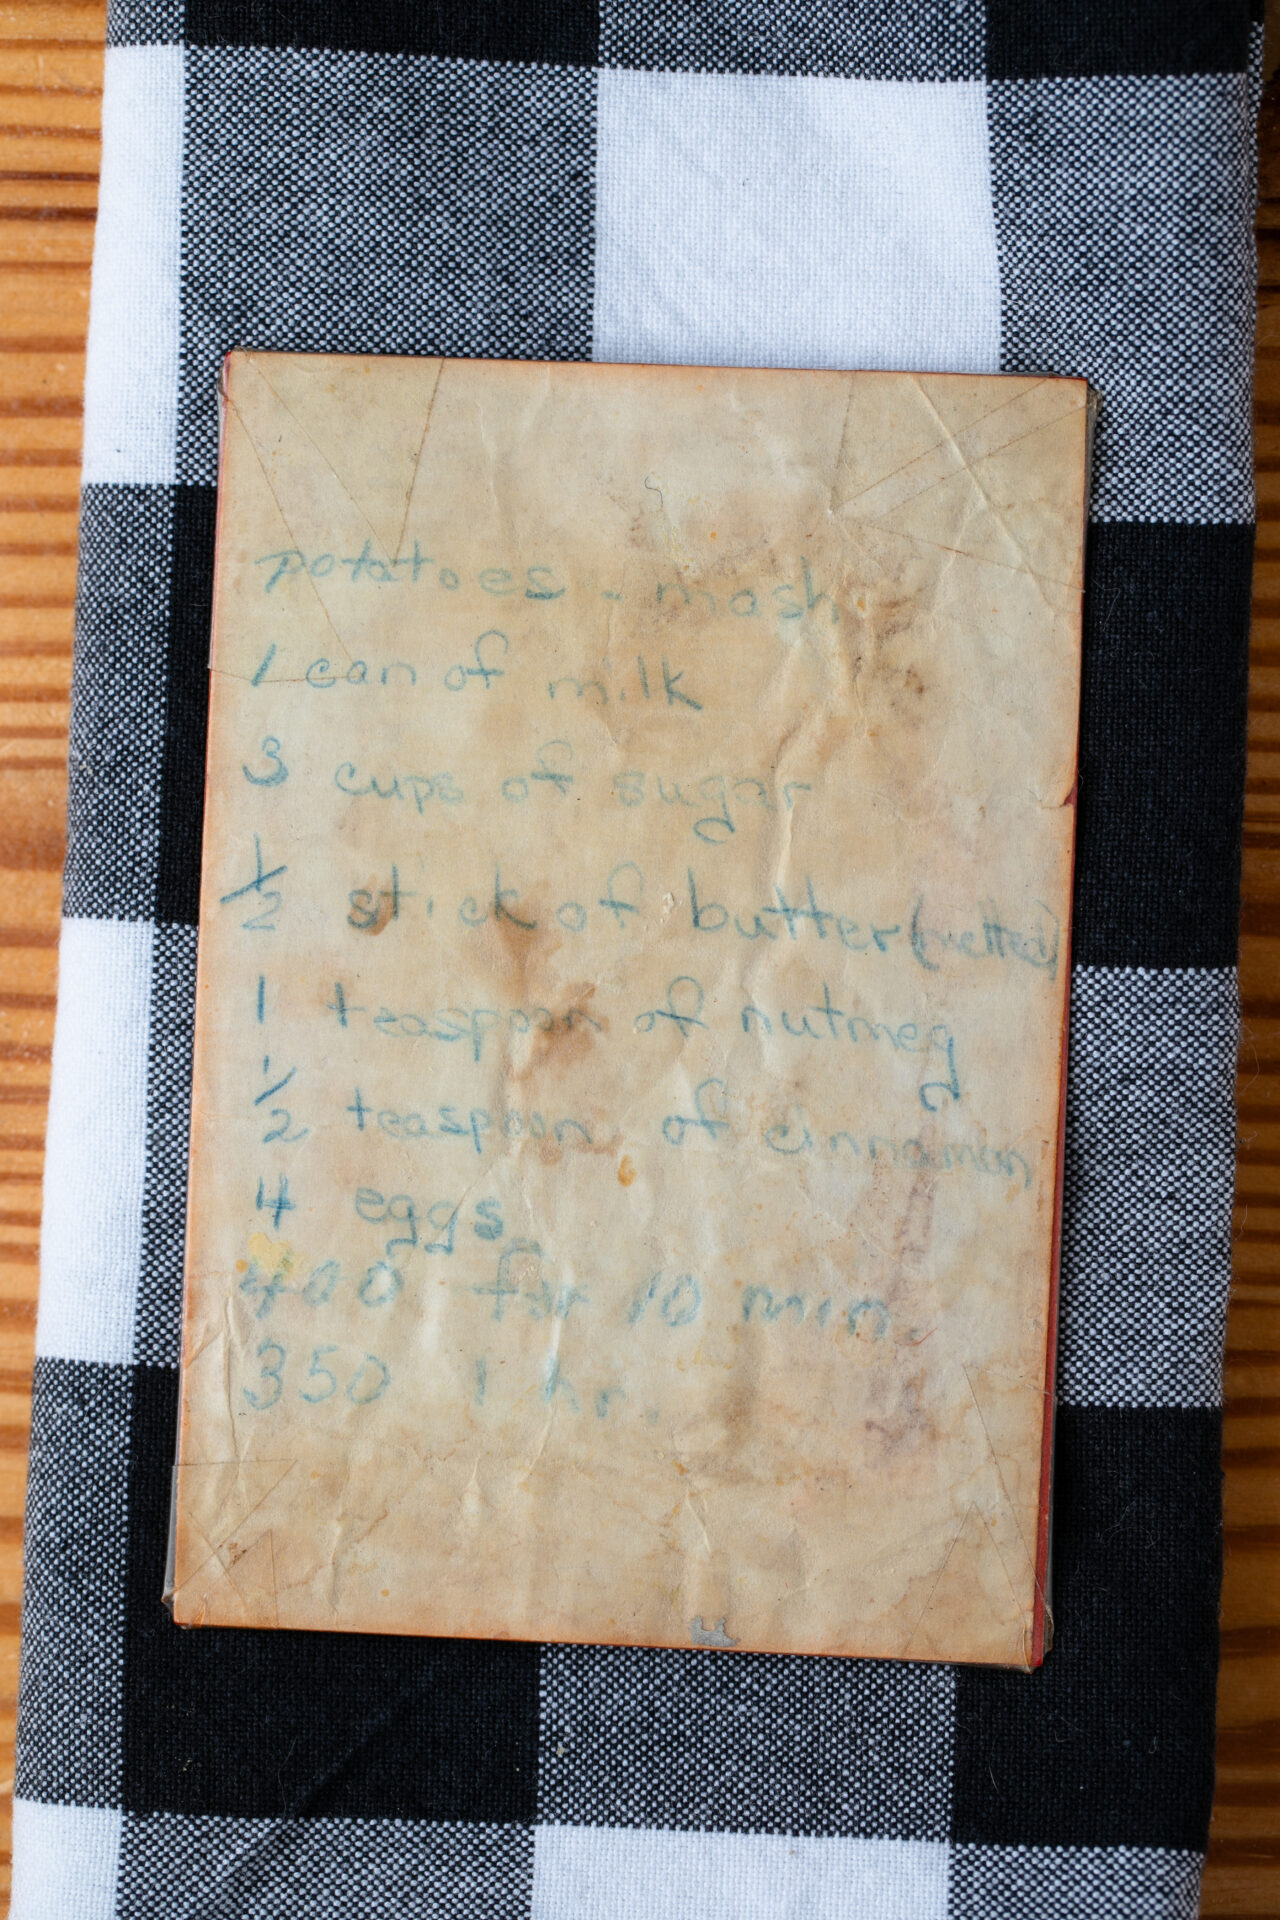 potatoes - mash
1 can of milk
3 cups of sugar
1/2 stick of butter (melted)
1 teaspoon of nutmeg
1/2 teaspoon of cinnamon
4 eggs
400 for 10 min.
350 1 hr.